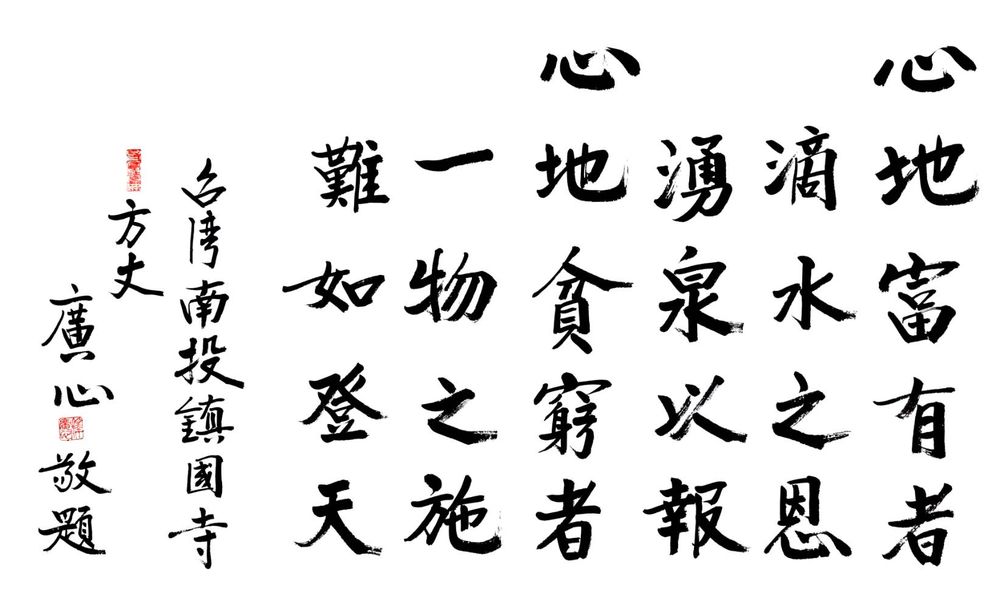 心地富有者
滴水之恩
湧泉以報
心地貧窮者
一物之施
難如登天
台湾南投鎮國寺
方丈
廣心
敬題